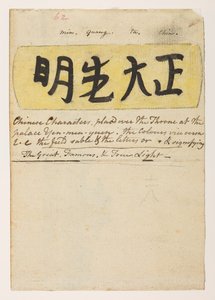 62
min. quang. ta. chin.
正大光明
Chinese Characters, placed over the Throne at the
palace Yuen-men-yuen. the Colours are reversed
i.e the field sable & the letters or - & signifying
The Great, Famous, & True Light —